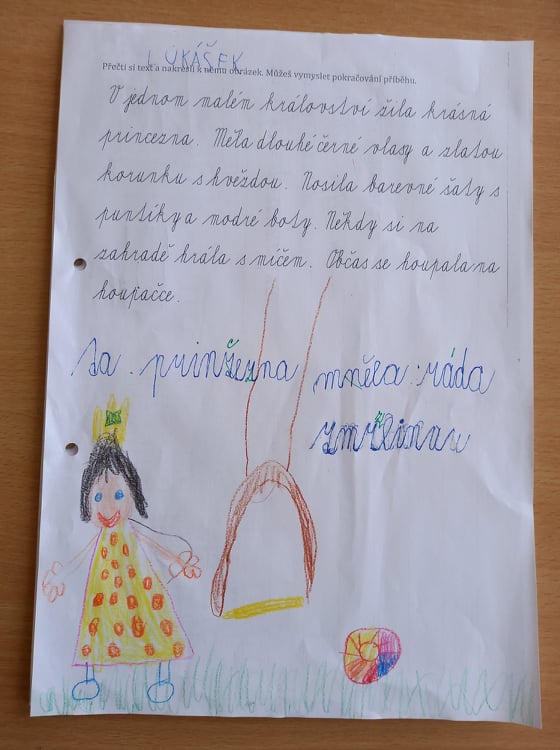 LUKÁŠEK
Přečti si text a nakresli k němu obrázek. Můžeš vymyslet pokračování příběhu.
V jednom malém království žila krásná
princezna. Měla dlouhé černé vlasy a zlatou
korunku s hvězdou. Nosila barevné šaty s
puntíky a modré boty. Někdy si na
zahradě hrála s míčem. Občas se houpala na
houpačce.
ta prinžezna mněla ráda
zmržlinau